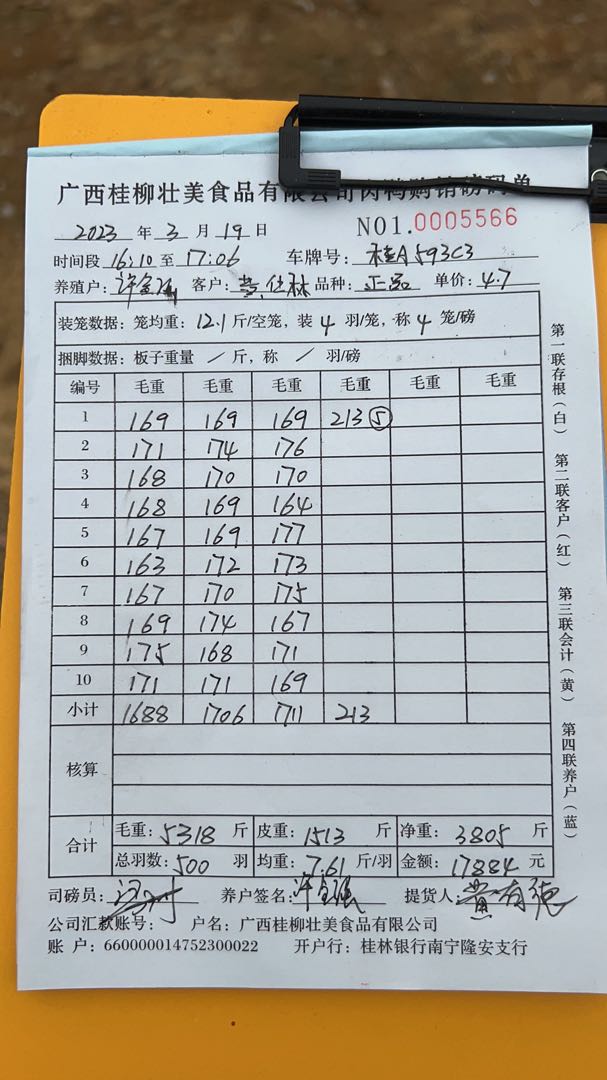 广西桂柳壮美食品有限公司肉鸭购销磅码单
2023 年 3 月 19 日 NO1.0005566
时间段 16:10 至 17:06 车牌号: 桂A593C3
养殖户: 许 客户: 黄 林 品种: 正品 单价: 4.7
装笼数据: 笼均重: 12.1 斤/空笼, 装 4 羽/笼, 称 4 笼/磅
捆脚数据: 板子重量 / 斤, 称 / 羽/磅
编号 毛重 毛重 毛重 毛重 毛重 毛重
1 169 169 169 213 ⑤
2 171 174 176
3 168 170 170
4 168 169 164
5 167 169 177
6 163 172 173
7 167 170 175
8 169 174 167
9 175 168 171
10 171 171 169
小计 1688 1706 1711 213
核算
合计 毛重: 5318 斤 皮重: 1513 斤 净重: 3805 斤
总羽数: 500 羽 均重: 7.61 斤/羽 金额: 17884 元
司磅员: 养户签名: 许金强 提货人: 黄有德
公司汇款账号: 户名: 广西桂柳壮美食品有限公司
账 户: 660000014752300022 开户行: 桂林银行南宁隆安支行
第一联存根(白) 第二联客户(红) 第三联会计(黄) 第四联养户(蓝)